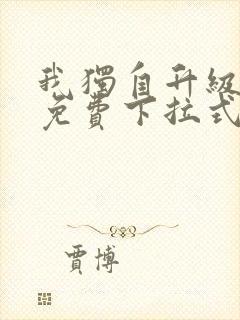 我獨自升級
免費下拉式
賈博